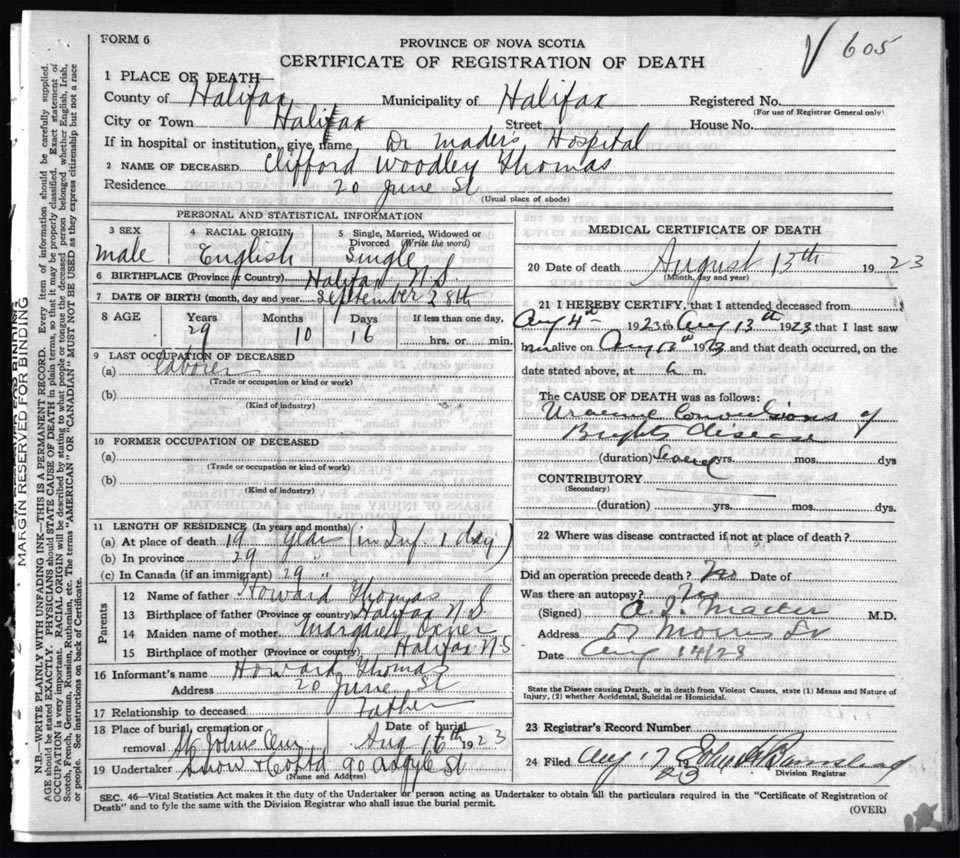 FORM 6
605
PROVINCE OF NOVA SCOTIA
CERTIFICATE OF REGISTRATION OF DEATH
1 PLACE OF DEATH
County of Halifax Municipality of Halifax Registered No.
(For use of Registrar General only)
City or Town Halifax Street House No.
If in hospital or institution, give name, Dr Maders Hospital
2 NAME OF DECEASED Clifford Woodley Thomas
Residence 20 June St
(Usual place of abode)
PERSONAL AND STATISTICAL INFORMATION
3 SEX 4 RACIAL ORIGIN 5 Single, Married, Widowed or Divorced (Write the word)
male English Single
6 BIRTHPLACE (Province or Country) Halifax N S
7 DATE OF BIRTH (month, day and year) September 28th
8 AGE Years Months Days If less than one day,
29 10 16 hrs. or min.
9 LAST OCCUPATION OF DECEASED
(a) laborer
(Trade or occupation or kind or work)
(b)
(Kind of industry)
10 FORMER OCCUPATION OF DECEASED
(a)
(Trade or occupation or kind or work)
(b)
(Kind of industry)
11 LENGTH OF RESIDENCE (In years and months)
(a) At place of death 19 years (in Inf. 1 day)
(b) In province 29 "
(c) In Canada (if an immigrant) 29 "
Parents
12 Name of father Howard Thomas
13 Birthplace of father (Province or country) Halifax N S
14 Maiden name of mother Margaret
15 Birthplace of mother (Province or country) Halifax N S
16 Informant's name Howard Thomas
Address 20 June St
17 Relationship to deceased father
18 Place of burial, cremation or removal St Johns Cem Date of burial Aug 16th 1923
19 Undertaker Snow & Co Ltd 90 Argyle St
(Name and Address)
MEDICAL CERTIFICATE OF DEATH
20 Date of death August 13th 1923
(Month, day and year)
21 I HEREBY CERTIFY, that I attended deceased from
Aug 4th 1923 to Aug 13th 1923 that I last saw
him alive on Aug 13th 1923 and that death occurred, on the
date stated above, at m.
The CAUSE OF DEATH was as follows:
Uraemic Convulsions of
Brights disease
(duration) Several yrs. mos. dys
CONTRIBUTORY
(Secondary)
(duration) yrs. mos. dys
22 Where was disease contracted if not at place of death?
Did an operation precede death? No Date of
Was there an autopsy? No
(Signed) Mader M.D.
Address 57 Morris St
Date Aug 14/23
State the Disease causing Death, or in death from Violent Causes, state (1) Means and Nature of
Injury, (2) whether Accidental, Suicidal or Homicidal.
23 Registrar's Record Number
24 Filed Aug 17 1923
Division Registrar
SEC. 46—Vital Statistics Act makes it the duty of the Undertaker or person acting as Undertaker to obtain all the particulars required in the "Certificate of Registration of
Death" and to fyle the same with the Division Registrar who shall issue the burial permit.
(OVER)
MARGIN RESERVED FOR BINDING
N.B.—WRITE PLAINLY WITH UNFADING INK—THIS IS A PERMANENT RECORD. Every item of information should be carefully supplied.
AGE should be stated EXACTLY. PHYSICIANS should STATE CAUSE OF DEATH in plain terms, so that it may be properly classified. Exact statement of
OCCUPATION is very important. RACIAL ORIGIN will be described by stating to what people or tongue the deceased person belonged whether English, Irish,
Scotch, French, German, Russian, Ruthenian, etc. The terms "AMERICAN" OR "CANADIAN" MUST NOT BE USED as they express citizenship but not a race
or people. See instructions on back of Certificate.